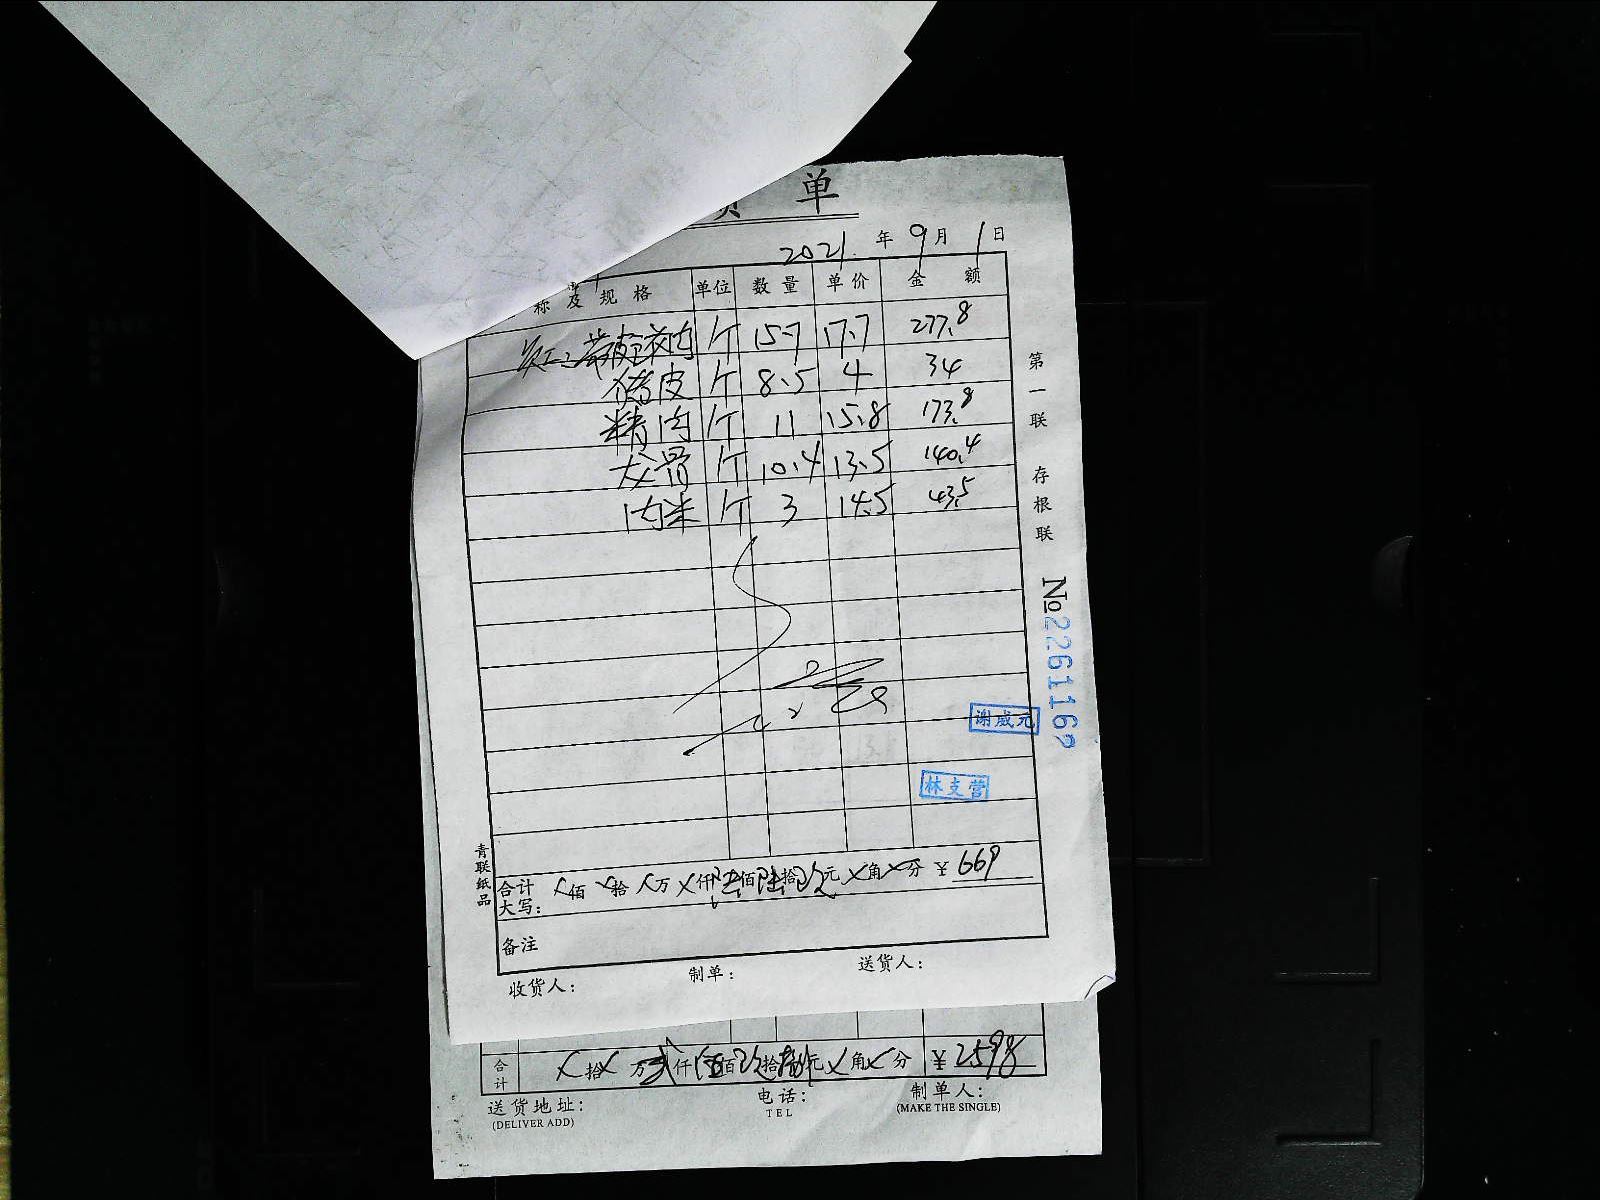 货 单
2021 年 9 月 1 日
称 及 规 格 单位 数 量 单 价 金 额
员工:带皮夹肉 斤 15.7 17.7 277.8
猪皮 斤 8.5 4 34
精肉 斤 11 15.8 173.8
龙骨 斤 10.4 13.5 140.4
肉米 斤 3 14.5 43.5
第一联 存根联
№2261162
谢威元
林支营
青联纸品
合计大写: ㄨ佰 ㄨ拾 ㄨ万 ㄨ仟 陆佰 陆拾 玖元 ㄨ角 ㄨ分 ¥ 669
备注
收货人: 制单: 送货人:
合计 ㄨ拾 ㄨ万 贰仟 伍佰 玖拾 捌元 ㄨ角 ㄨ分 ¥ 2598
送货地址: 电话: 制单人:
(DELIVER ADD) TEL (MAKE THE SINGLE)